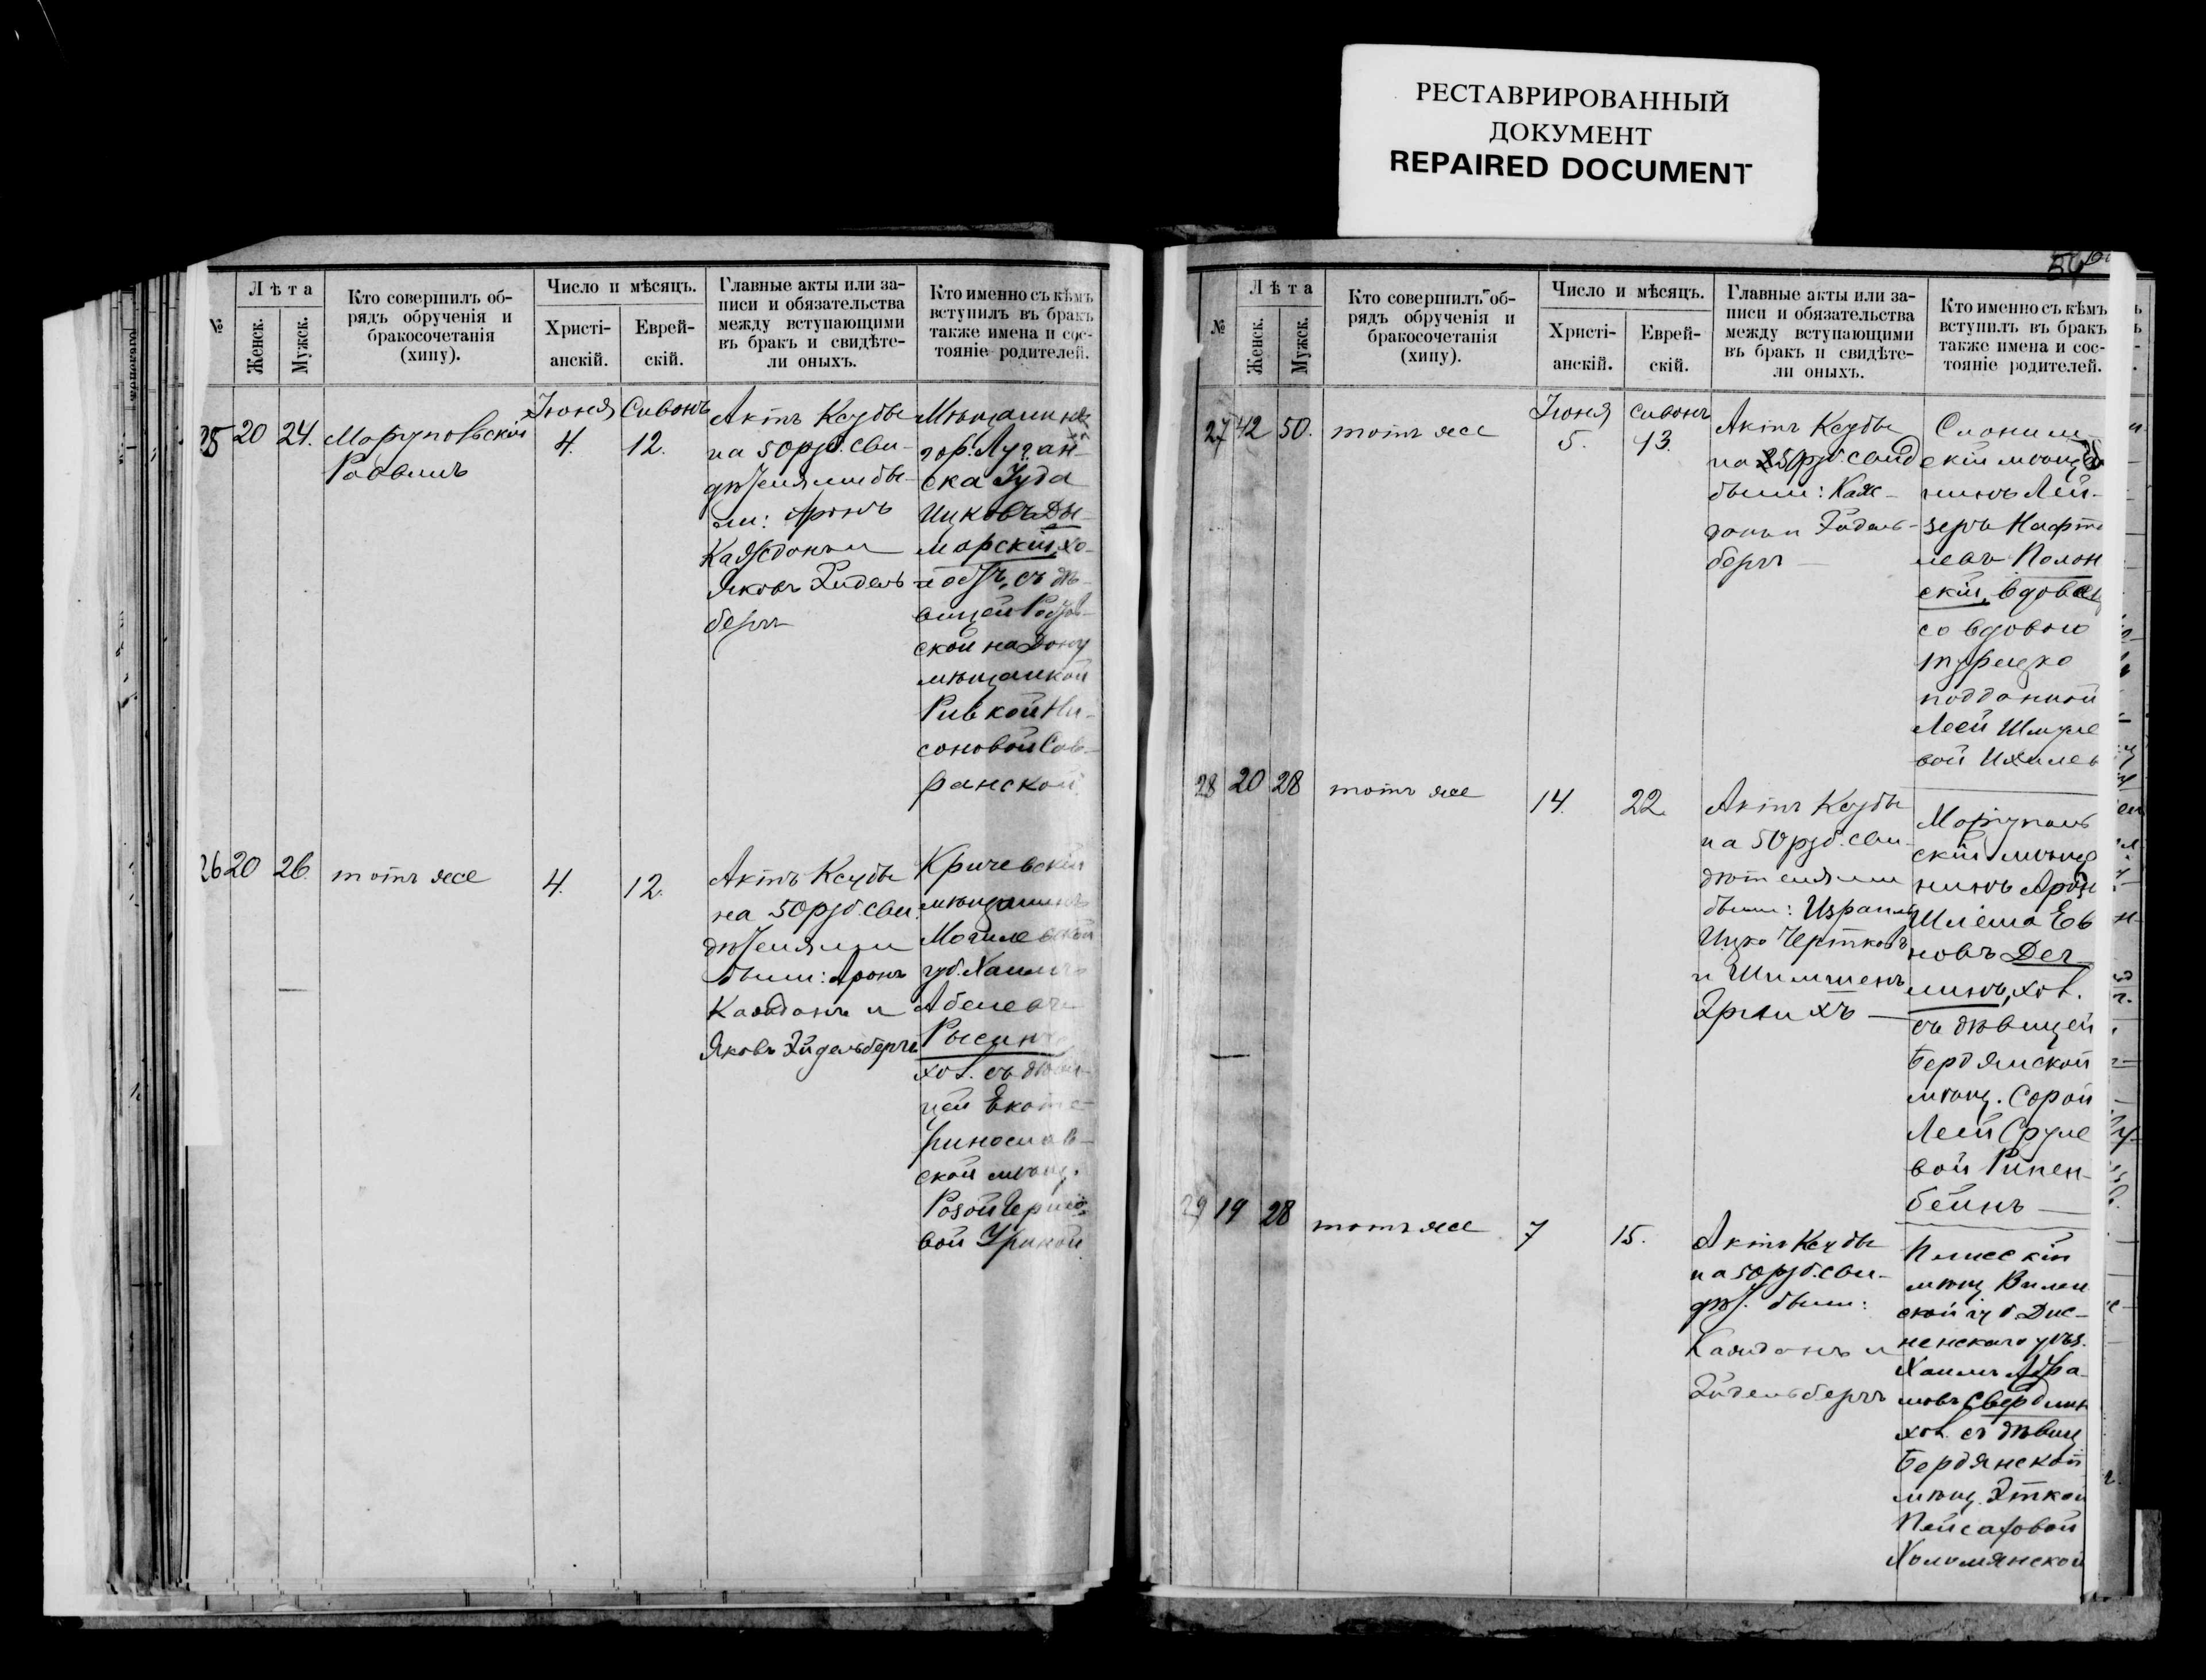 РЕСТАВРИРОВАННЫЙ
ДОКУМЕНТ
REPAIRED DOCUMENT
№
Лѣта
Женск.
Мужск.
Кто совершилъ об-
рядъ обрученія и
бракосочетанія
(хипу).
Число и мѣсяцъ.
Христі-
анскій.
Еврей-
скій.
Главные акты или за-
писи и обязательства
между вступающими
въ бракъ и свидѣте-
ли оныхъ.
Кто именно съ кѣмъ
вступилъ въ бракъ
также имена и сос-
тояніе родителей.
25
20
24.
Раввинъ
Іюня
4.
Сивонъ
12.
Актъ Ксубы
на 50 руб. сви-
дѣтелями бы-
ли: Аронъ
Каждонъ и
Яковъ Эйдель-
бергъ
Мѣщанинъ
гор. Луган-
ска Іуда
Ицковъ Ды-
марскій, хо-
лостъ, съ дѣ-
вицей Рост.
ской на Дону
мѣщанкой
Ривкой Ни-
соновой Сав-
ранской
26
20
26.
тотъ же
4.
12.
Актъ Ксубы
на 50 руб. сви-
дѣтелями
были: Аронъ
Каждонъ и
Яковъ Эйдельбергъ
Кричевскій
мѣщанинъ
Могилевской
губ. Хаимъ
Абелевъ
Рысинъ
хол. съ дѣви-
цей Екате-
ринослав-
ской мѣщ.
Розой
вой
№
Лѣта
Женск.
Мужск.
Кто совершилъ об-
рядъ обрученія и
бракосочетанія
(хипу).
Число и мѣсяцъ.
Христі-
анскій.
Еврей-
скій.
Главные акты или за-
писи и обязательства
между вступающими
въ бракъ и свидѣте-
ли оныхъ.
Кто именно съ кѣмъ
вступилъ въ бракъ
также имена и сос-
тояніе родителей.
27
42
50.
тотъ же
Іюня
5.
Сивонъ
13.
Актъ Ксубы
на 25 руб. свид
были: Каж-
донъ и Эйдель-
бергъ
Слоним-
скій мѣща
нинъ Лей-
зеръ Нафта
левъ Полон
скій, вдовец
со вдовою
турецко
подданной
Леей Шмуле
вой
28
20
28
тотъ же
14.
22.
Актъ Ксубы
на 50 руб. сви-
дѣтелями
были: Израиль
Ицко Чертковъ
и Шимшенъ
Эрлихъ
Маріуполь
скій мѣща
нинъ Аронъ
Шлема
новъ
хол.
съ дѣвицей
Бердянской
мѣщ. Сорой
Леей Сруле
вой Рипен-
бейнъ
29
19
28
тотъ же
7
15.
Актъ Ксубы
на 50 руб. сви-
дѣт. были:
Каждонъ и
Эйдельбергъ
мѣщ. Вилен
ской губ. Дис-
ненскаго уѣз.
Хаимъ Абра-
мовъ Свердлин
хол. съ дѣвиц
Бердянской
мѣщ. Эткой
Пейсаховой
Холомянской